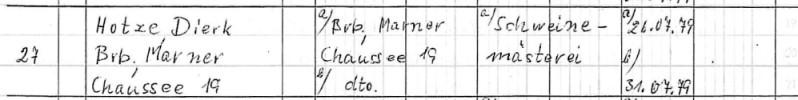 Hotze, Dierk a/ Brb, Marner a/ Schweine- a/ 26.07.79
27 Brb, Marner Chaussee 19 mästerei b/
Chaussee 19 b/ dto. 31.07.79